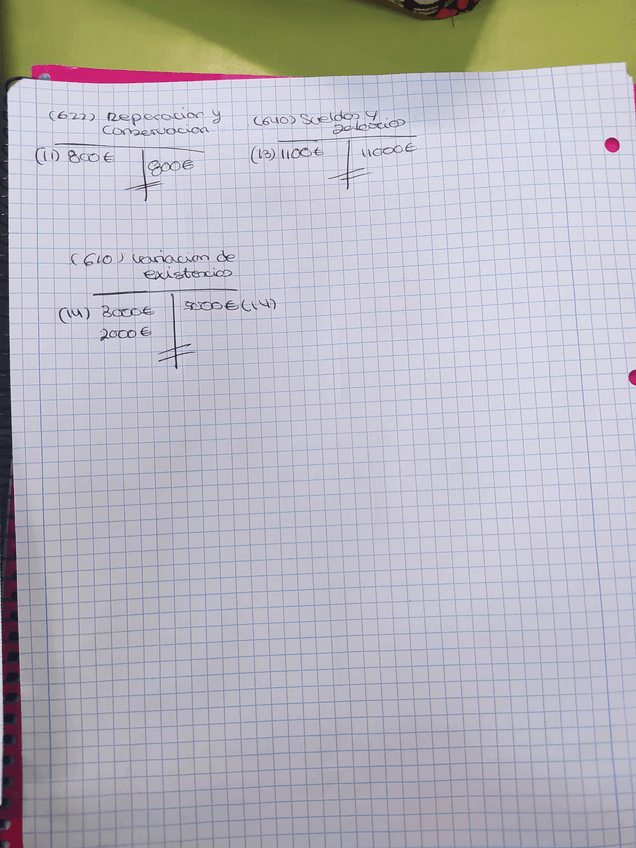 (622) Reparacion y
Conservacion
(11) 800€ 800€
(640) Sueldos y
salarios
(13) 1100€ 11000€
(610) Variacion de
existencias
(14) 3000€ 5000€ (14)
2000€